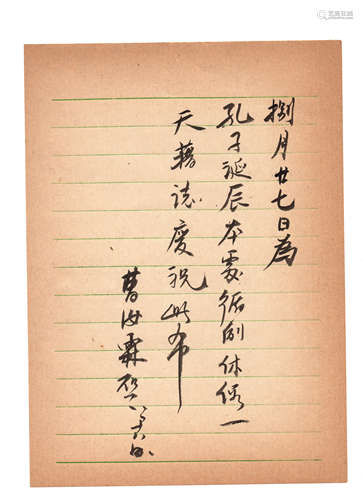 捌月廿七日為
孔子誕辰本處循例休假一
天藉誌慶祝此布
曹汝霖啟 八月廿六日